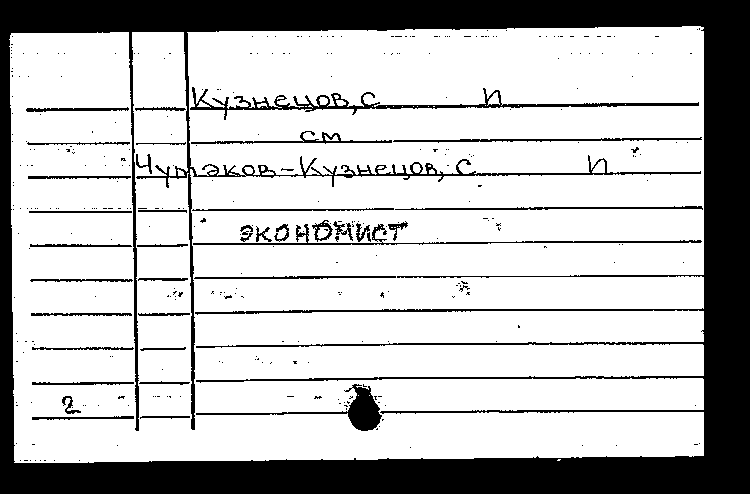 Кузнецов, С П
см
Кузнецов, С П
экономист
2